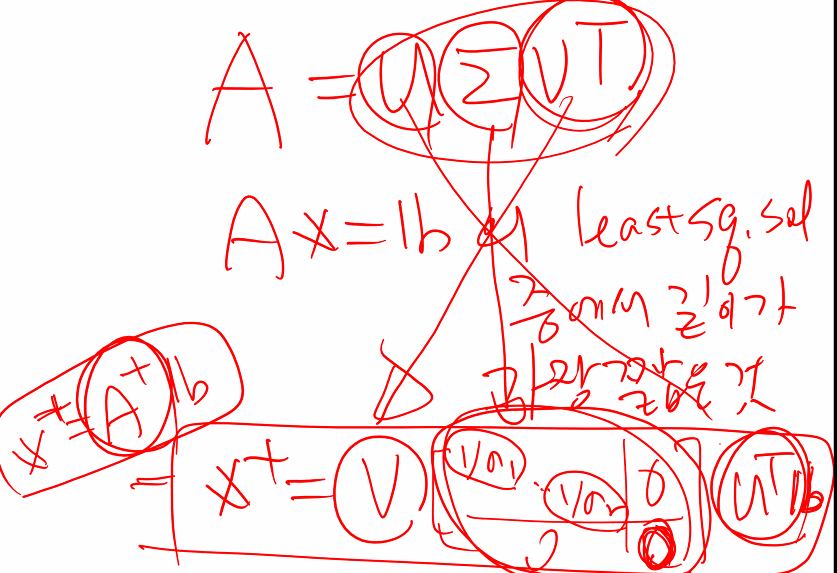 A = U Σ V^T
Ax = b 의 least sq. sol
중에서 길이가
가장 짧은 것
x^+ = A^+ b
= x^+ = V [1/σ_1 ⋱ 1/σ_r 0 0 0] U^T b